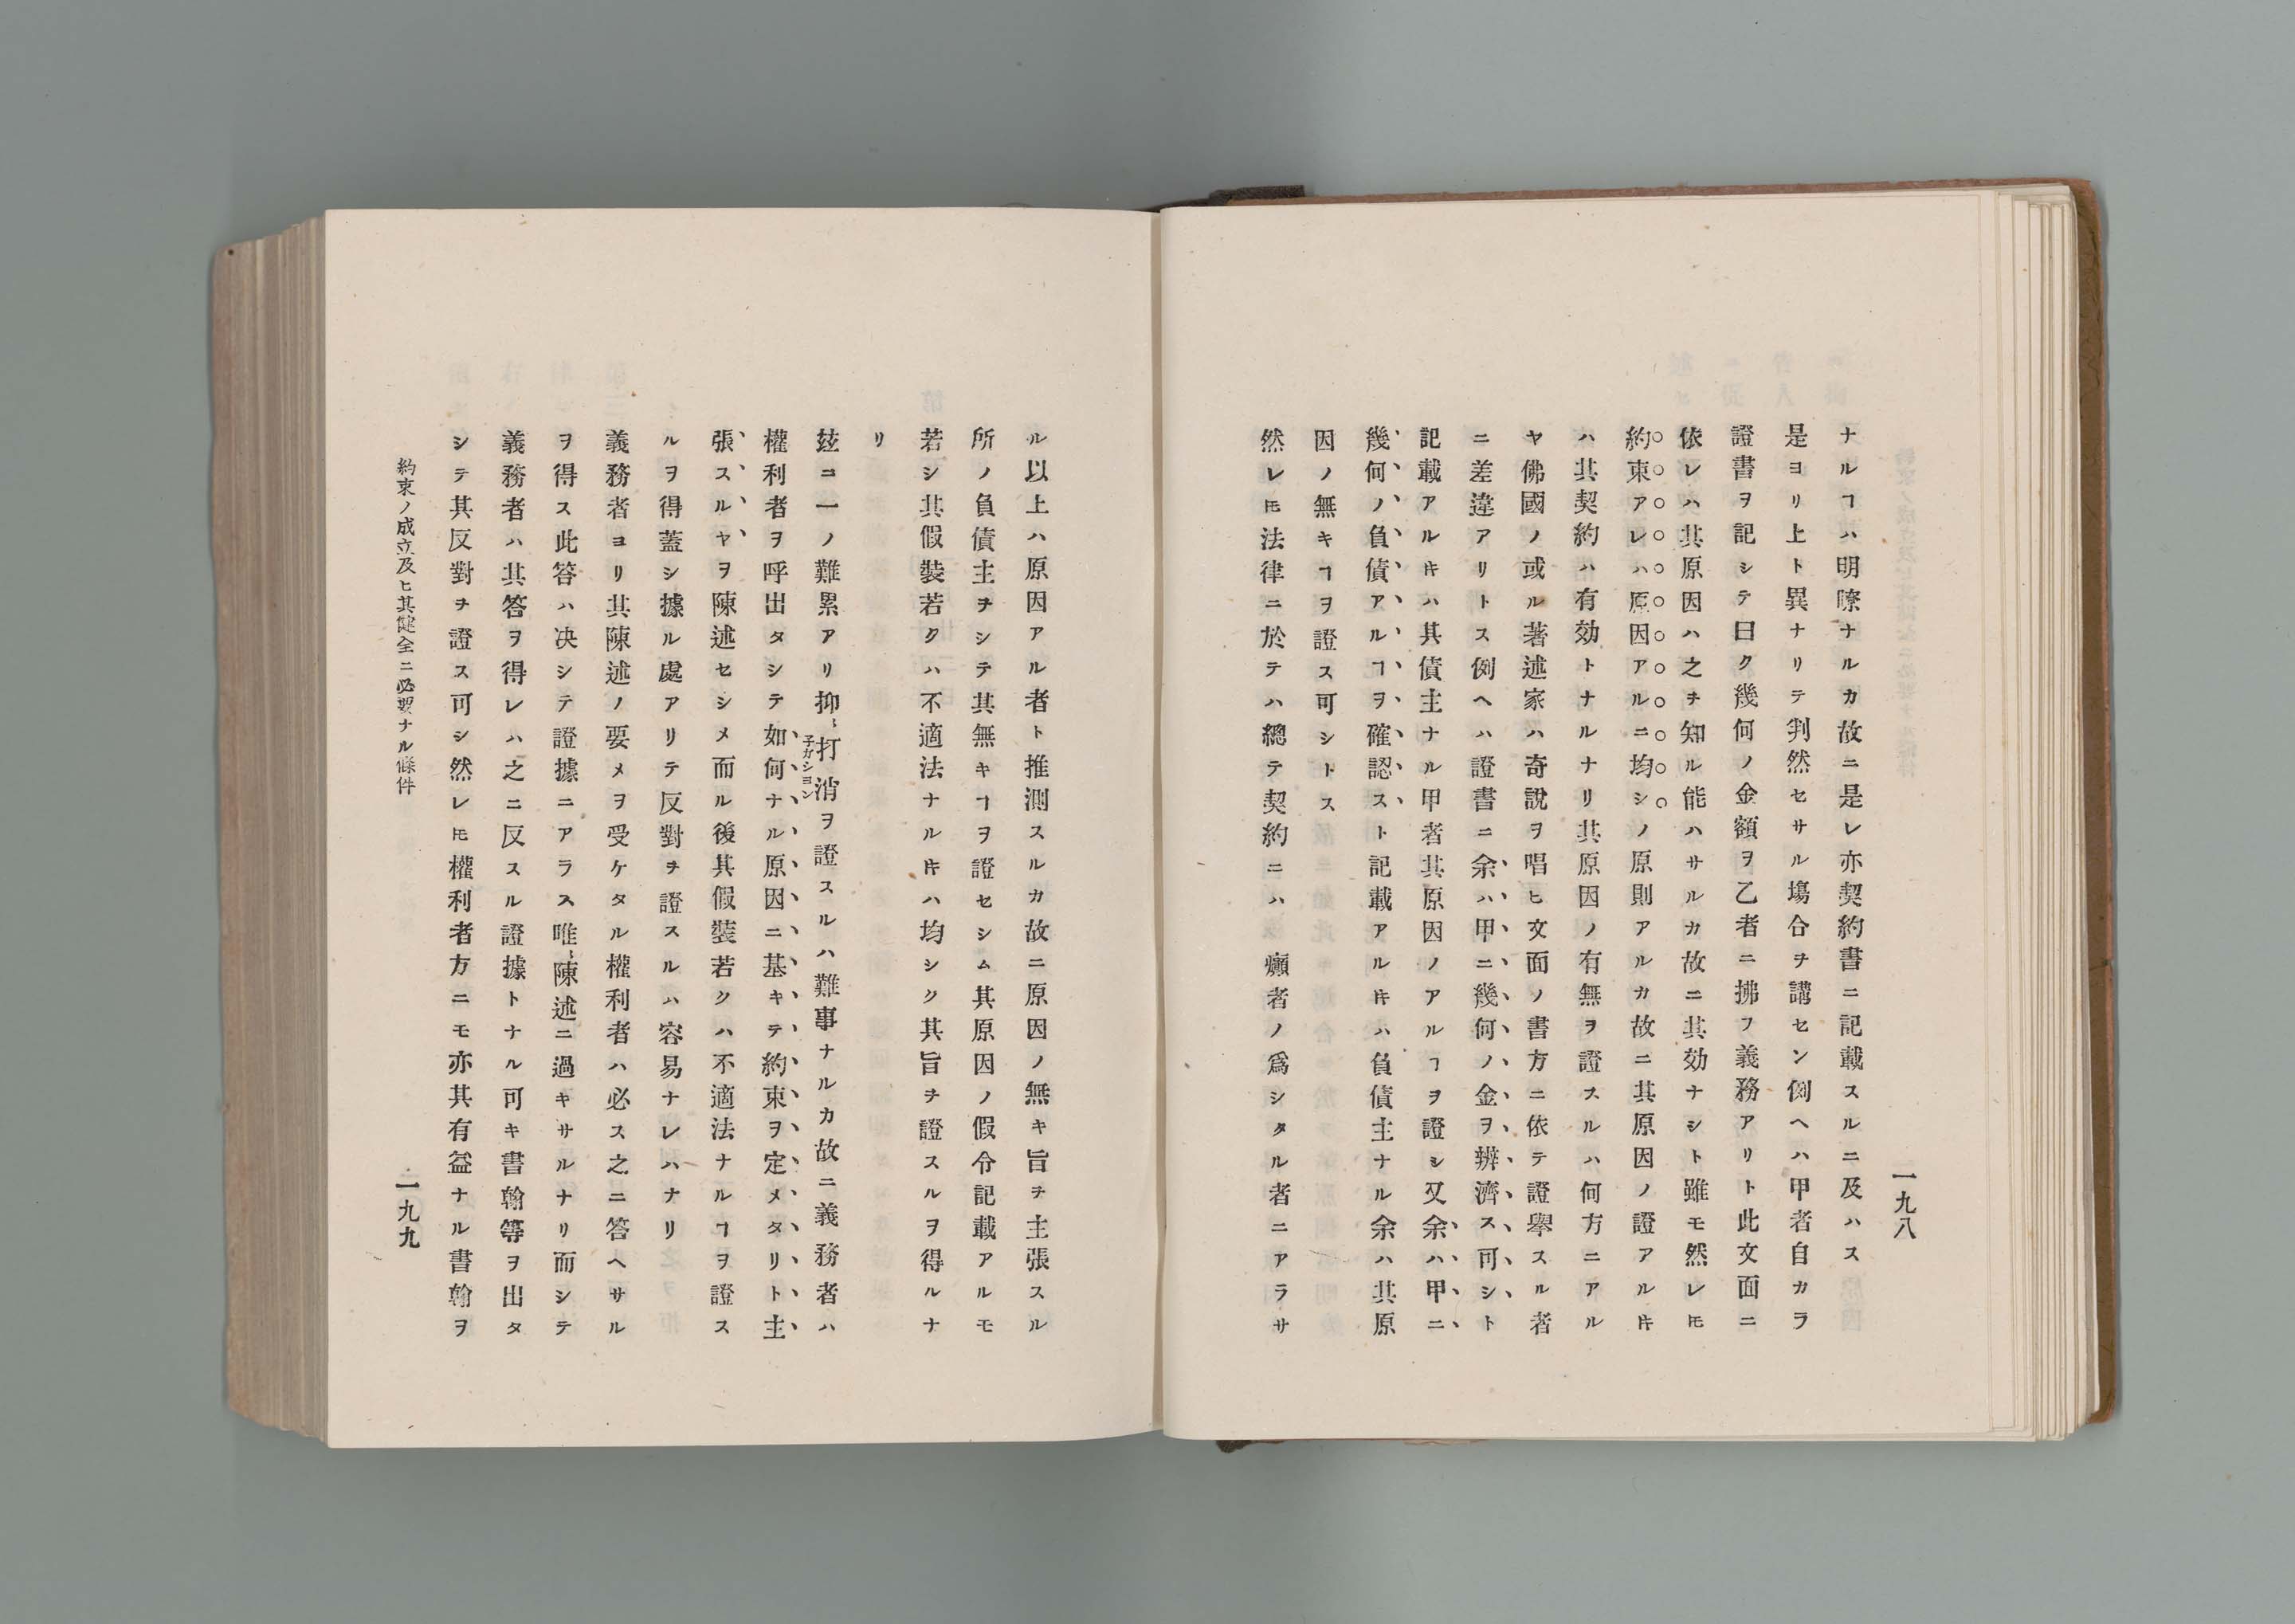 一九八
ナルヿハ明瞭ナルカ故ニ是レ亦契約書ニ記載スルニ及ハス
是ヨリ上ト異ナリテ判然セサル塲合ヲ講セン例ヘハ甲者自カラ
證書ヲ記シテ曰ク幾何ノ金額ヲ乙者ニ拂フ義務アリト此文面ニ
依レハ其原因ハ之ヲ知ル能ハサルカ故ニ其効ナシト雖モ然レ𪜈
約束アレハ原因アルニ均シノ原則アルカ故ニ其原因ノ證アル𪜈
ハ其契約ハ有効トナルナリ其原因ノ有無ヲ證スルハ何方ニアル
ヤ佛國ノ或ル著述家ハ奇説ヲ唱ヒ文面ノ書方ニ依テ證擧スル者
ニ差違アリトス例ヘハ證書ニ余ハ甲ニ幾何ノ金ヲ辨濟ス可シト
記載アルキハ其債主ナル甲者其原因ノアルヿヲ證シ又余ハ甲ニ
幾何ノ負債アルヿヲ確認スト記載アルキハ負債主ナル余ハ其原
因ノ無キヿヲ證ス可シトス
然レ𪜈法律ニ於テハ總テ契約ニハ癲者ノ爲シタル者ニアラサ
ル以上ハ原因アル者ト推測スルカ故ニ原因ノ無キ旨ヲ主張スル
所ノ負債主ヲシテ其無キヿヲ證セシム其原因ノ假令記載アルモ
若シ其假裝若クハ不適法ナルキハ均シク其旨ヲ證スルヲ得ルナ
リ
玆ニ一ノ難累アリ抑〻打消ヲ證スルハ難事ナルカ故ニ義務者ハ
子ガシヨン
權利者ヲ呼出タシテ如何ナル原因ニ基キテ約束ヲ定メタリト主
張スルヤヲ陳述セシメ而ル後其假裝若クハ不適法ナルヿヲ證ス
ルヲ得蓋シ據ル處アリテ反對ヲ證スルハ容易ナレハナリ
義務者ヨリ其陳述ノ要メヲ受ケタル權利者ハ必ス之ニ答ヘサル
ヲ得ス此答ハ决シテ證據ニアラス唯〻陳述ニ過キサルナリ而シテ
義務者ハ其答ヲ得レハ之ニ反スル證據トナル可キ書翰等ヲ出タ
シテ其反對ヲ證ス可シ然レ𪜈權利者方ニモ亦其有益ナル書翰ヲ
約束ノ成立及ヒ其健全ニ必要ナル條件
一九九